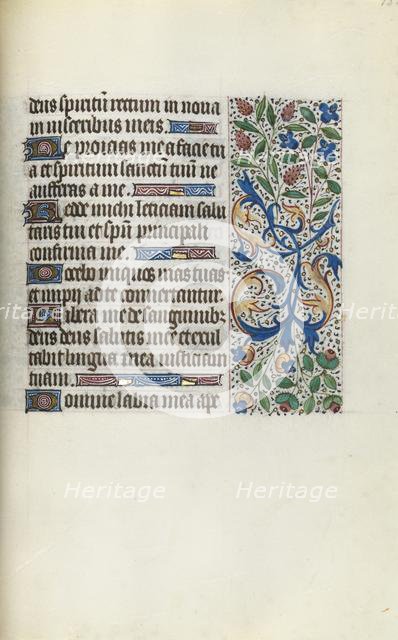 deus spiritū rectum in nova
in visceribus meis.
Ne proicias me a facie tu
a et spiritum sanctū tuū ne
aufferas a me.
Redde michi leticiam salu
taris tui et spū principali
confirma me.
Docebo iniquos vias tuas
et impii ad te convertentur.
Libera me de sanguinib
deus deus salutis mee et exul
tabit lingua mea iusticiam
tuam.
Domine labia mea ape
Heritage
Heritage
Heritage
Heritage
Heritage
Heritage